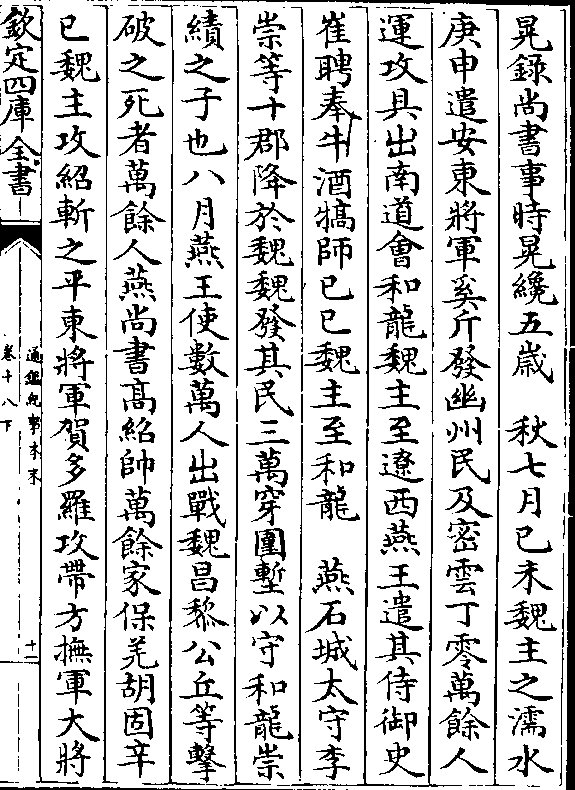 晃錄尚書事時晃纔五歲　秋七月己未魏主之濡水
庚申遣安東將軍奚斤發幽州民及密雲丁零萬餘人
運攻具出南道會和龍魏主至遼西燕王遣其侍御史
崔聘奉牛酒犒師己巳魏主至和龍　燕石城太守李
崇等十郡降於魏魏發其民三萬穿圍塹以守和龍崇
績之子也八月燕王使數萬人出戰魏昌黎公丘等擊
破之死者萬餘人燕尚書髙紹帥萬餘家保羌胡固辛
巳魏主攻紹斬之平東將軍賀多羅攻帶方撫軍大將
欽定四庫全書
通鑑紀事本末
卷十八下
十一